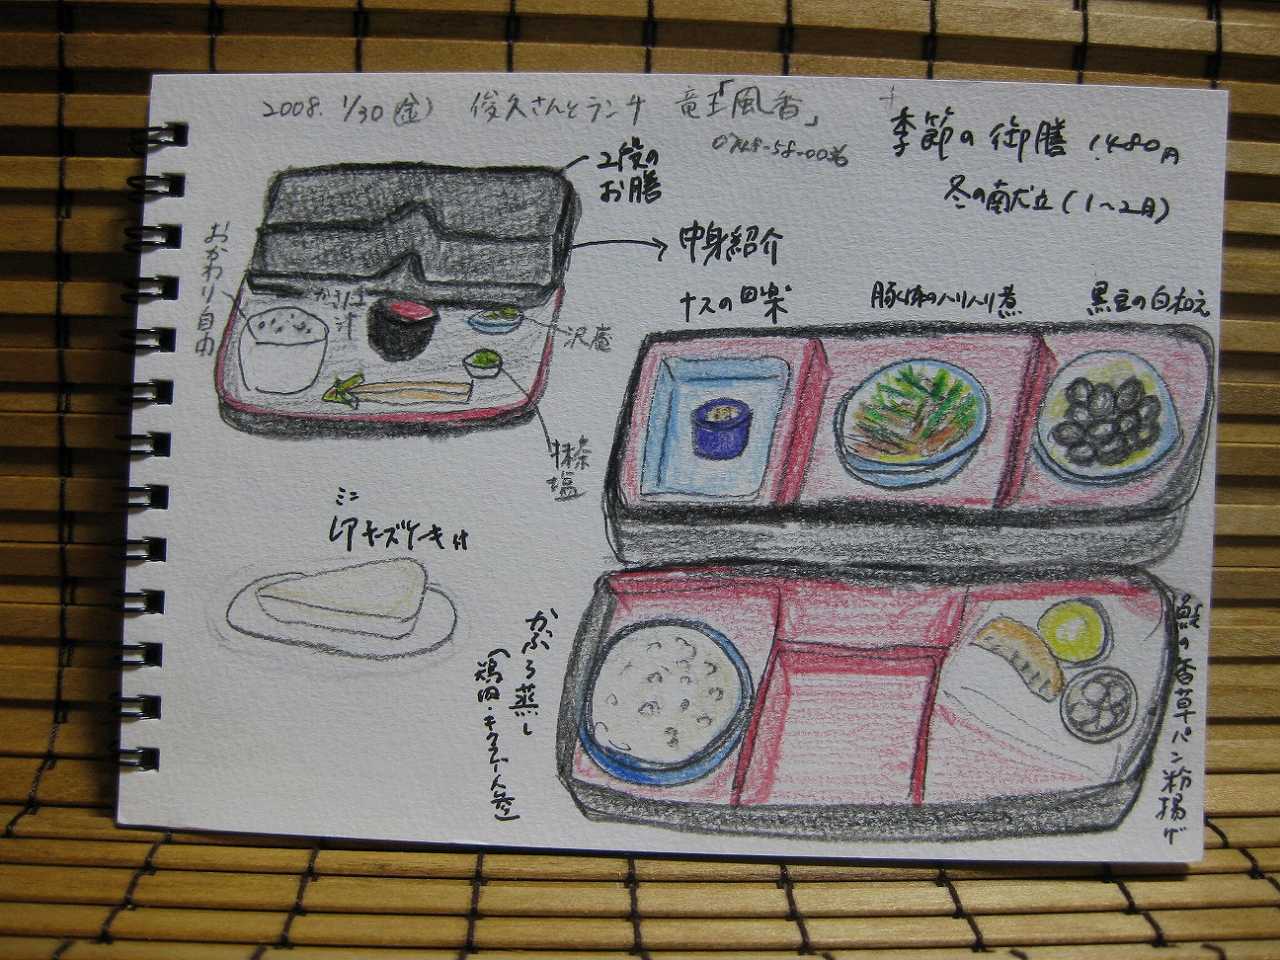 2008. 1/30(金) 俊久さんとランチ 竜王「風香」
0748-58-00
季節の御膳 1.480円
冬の献立(1〜2月)
2段の
お膳
中身紹介
おかわり自由
汁
沢庵
抹茶
塩
ナスの田楽
豚肉のハリハリ煮
黒豆の白和え
ミニ
レアチーズケーキ付
かぶら蒸し
(鶏肉・キクラゲ・人参)
鮭の香草パン粉揚げ